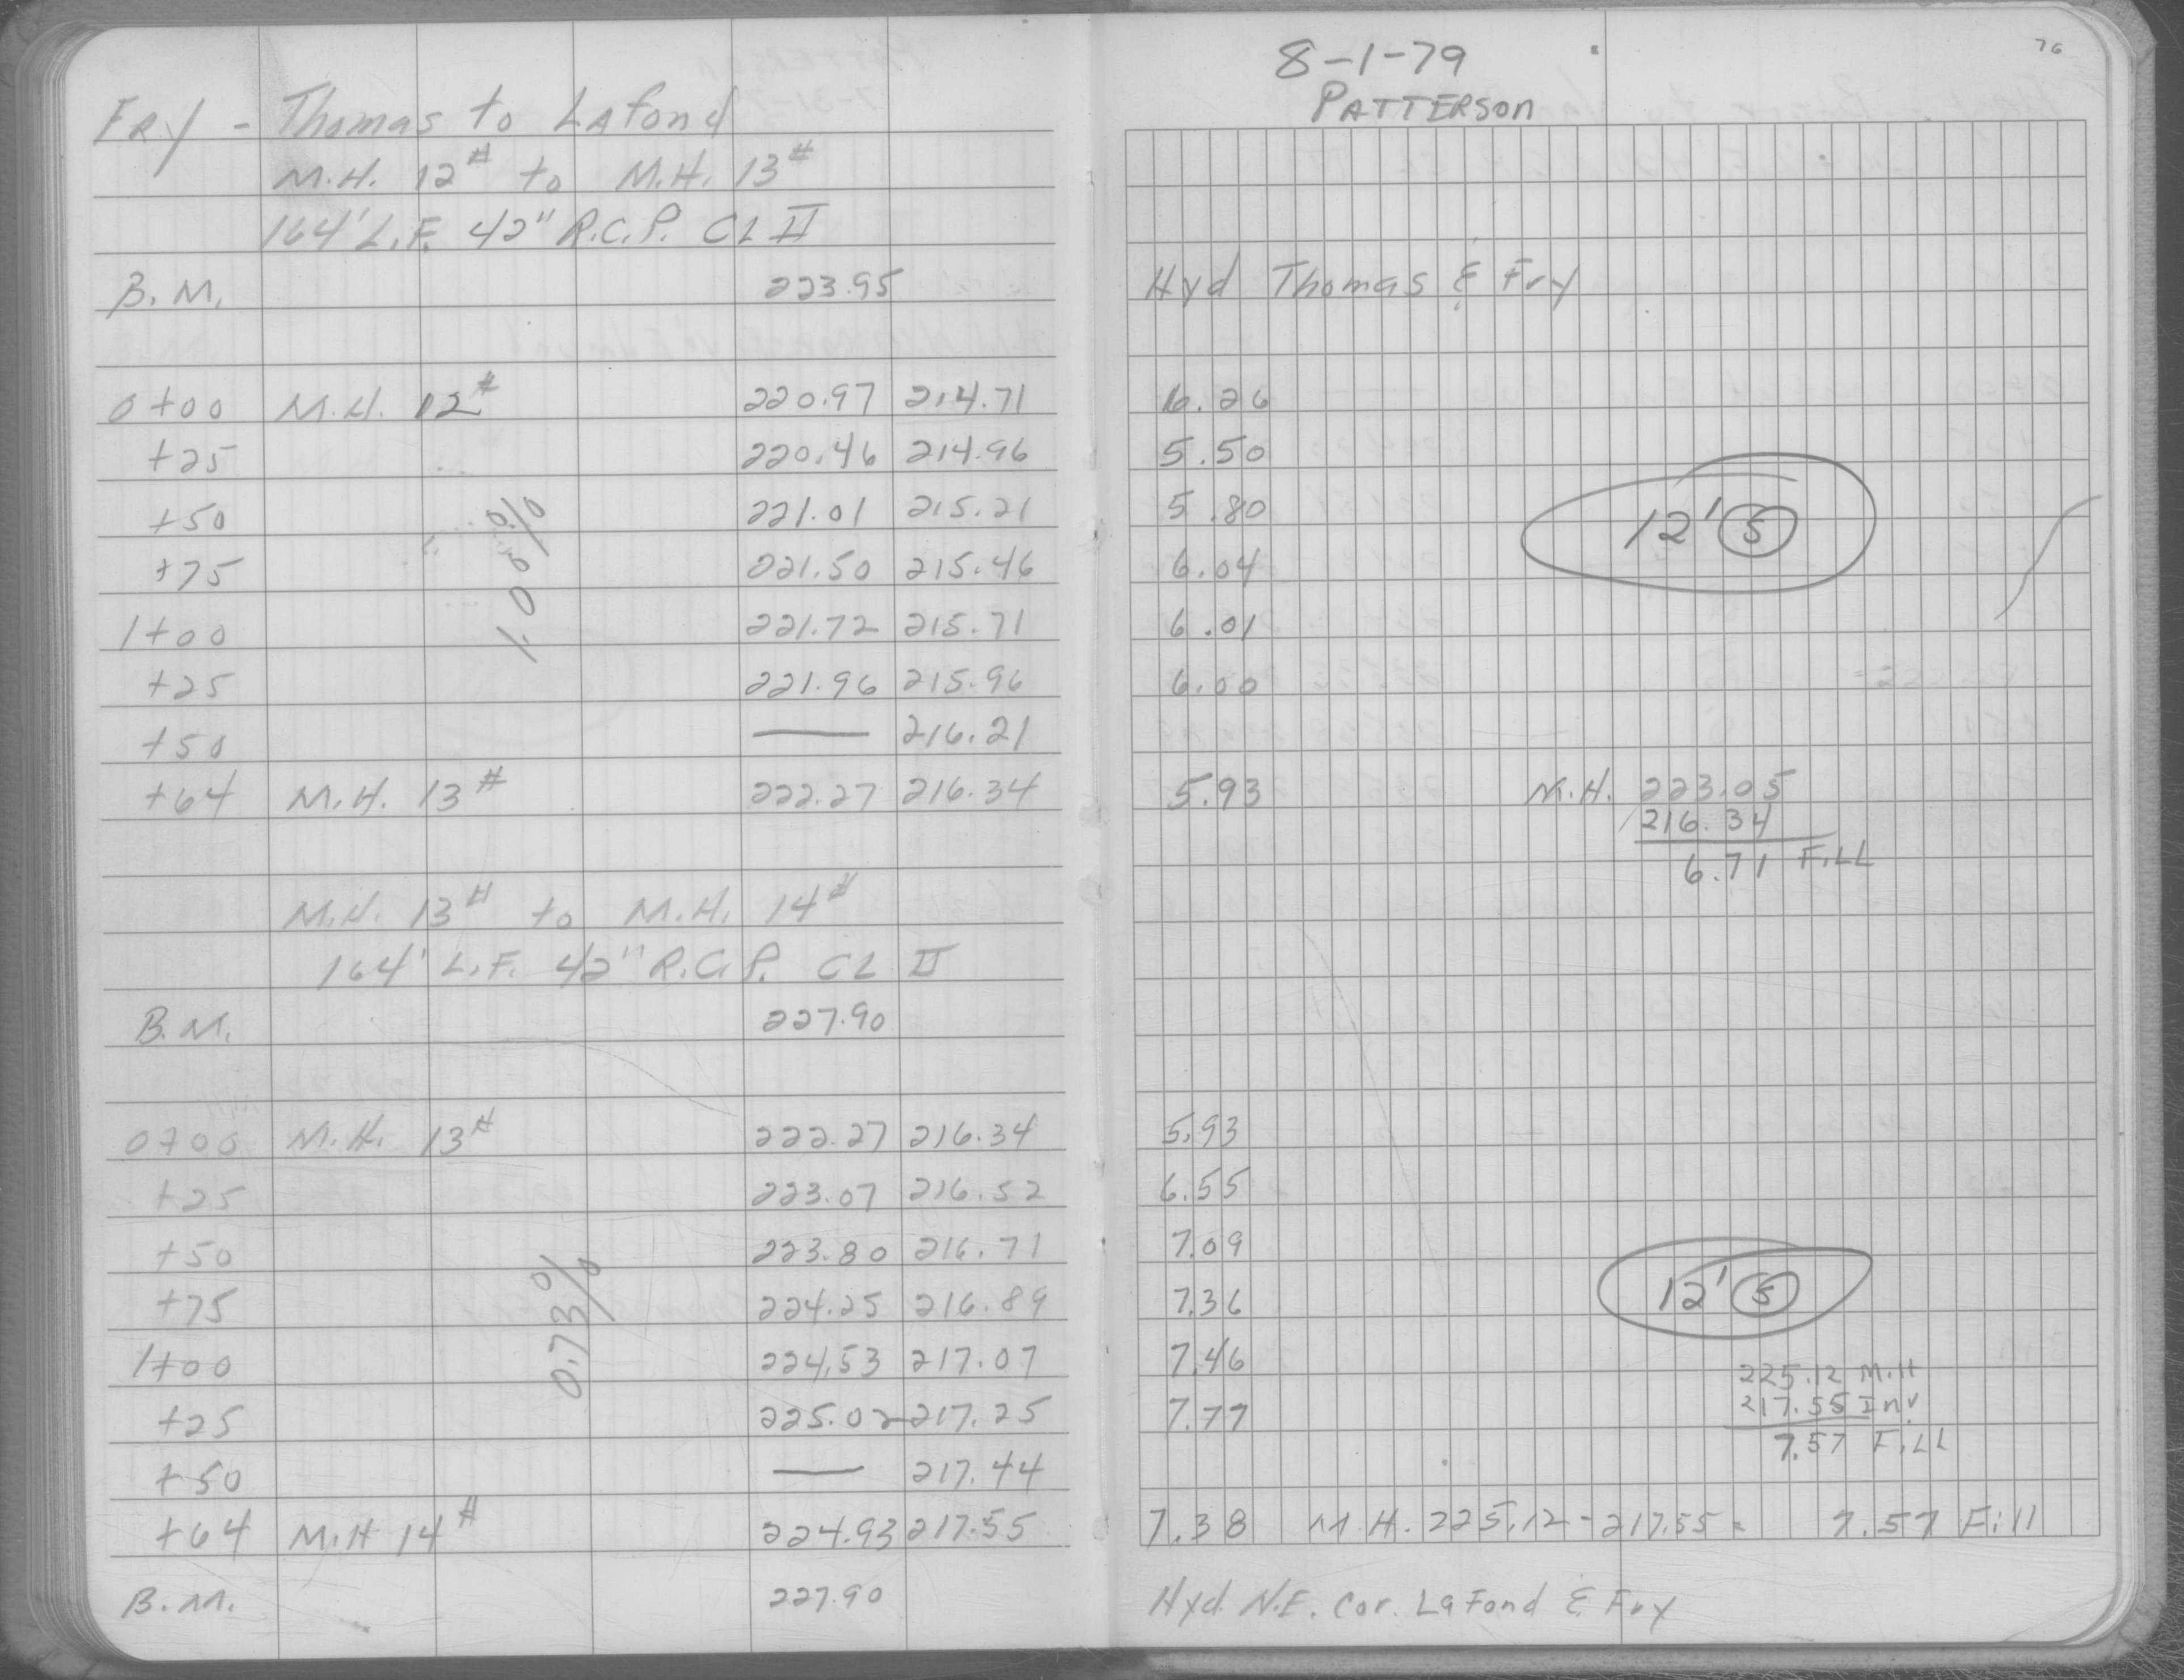 76
8-1-79
PATTERSON
FRY - Thomas to LAfond
M.H. 12# to M.H. 13#
164' L.F. 42" R.C.P. CL II
B.M. 223.95 Hyd Thomas & Fry
0+00 M.H. 12# 220.97 214.71 6.26
+25 220.46 214.96 5.50
+50 221.01 215.21 5.80
12' S
+75 221.50 215.46 6.04
1.00%
1+00 221.72 215.71 6.01
+25 221.96 215.96 6.00
+50 — 216.21
+64 M.H. 13# 222.27 216.34 5.93 M.H. 223.05
216.34
6.71 FILL
M.H. 13# to M.H. 14#
164' L.F. 42" R.C.P. CL II
B.M. 227.90
0+00 M.H. 13# 222.27 216.34 5.93
+25 223.07 216.52 6.55
+50 223.80 216.71 7.09
+75 224.25 216.89 7.36
12' S
0.73%
1+00 224.53 217.07 7.46
225.12 M.H
+25 225.02 217.25 7.77
217.55 Inv
7.57 FILL
+50 — 217.44
+64 M.H 14# 224.93 217.55 7.38 M.H. 225.12 - 217.55 = 7.57 Fill
B.M. 227.90 Hyd. N.E. Cor. LaFond & Fry